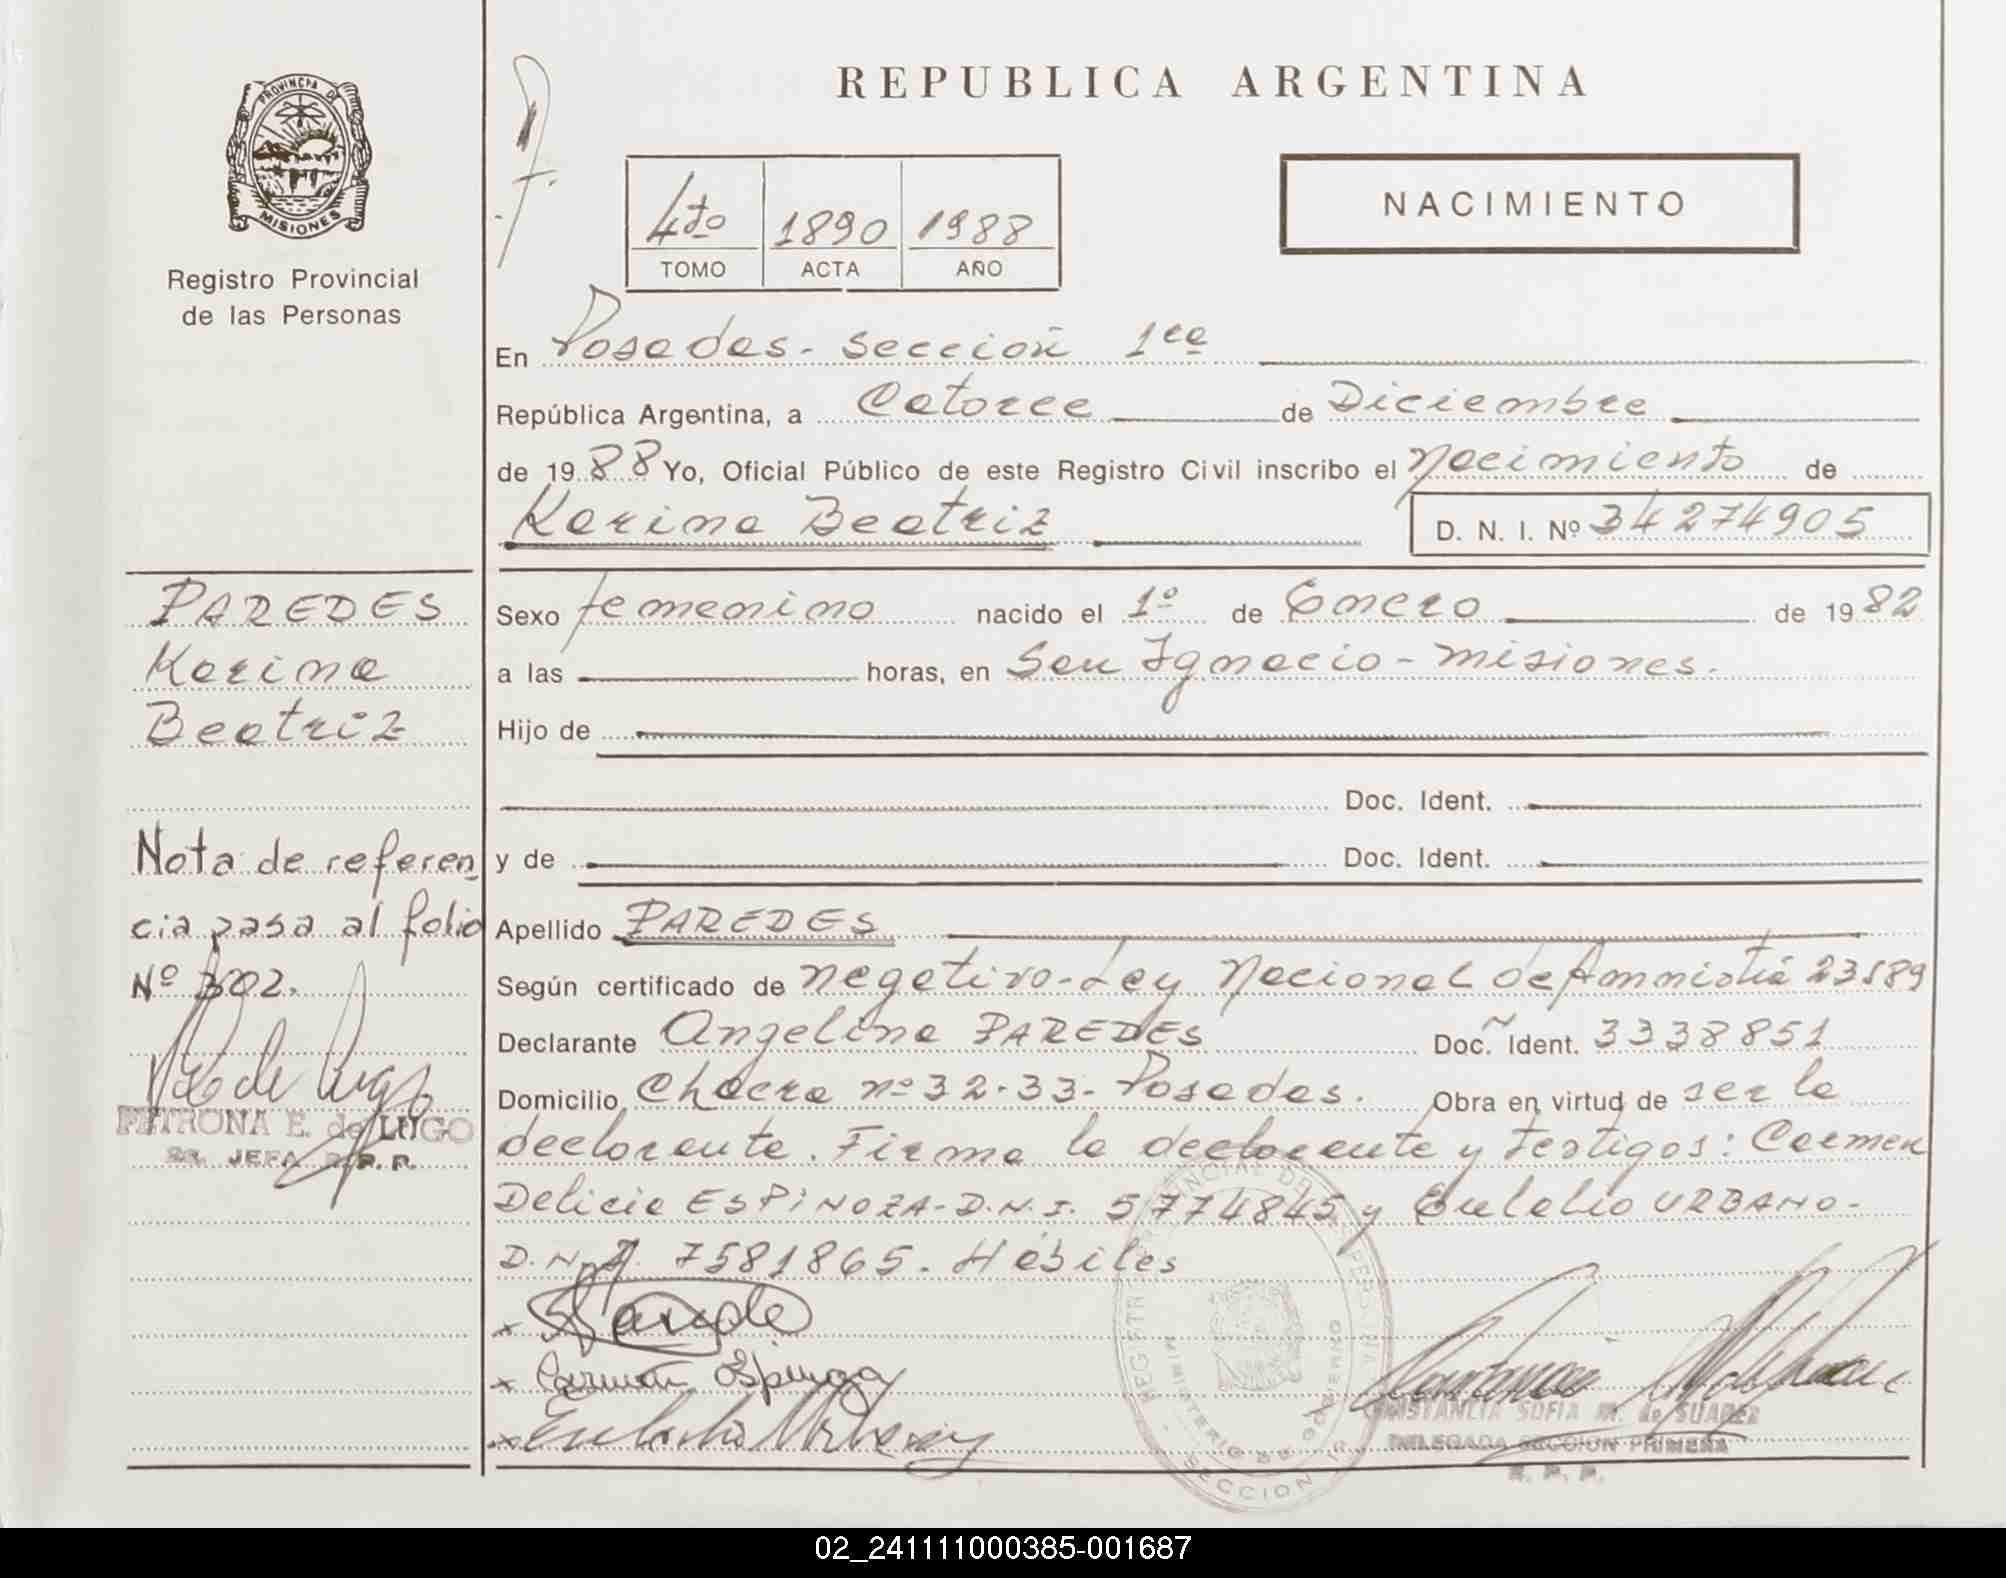 REPUBLICA ARGENTINA
PROVINCIA DE
MISIONES
Registro Provincial
de las Personas
4to 1890 1988
TOMO ACTA AÑO
NACIMIENTO
En Posadas - Sección 1ra
República Argentina, a Catorce de Diciembre
de 1988 Yo, Oficial Público de este Registro Civil inscribo el Nacimiento de
Karina Beatriz D. N. I. Nº 34274905
PAREDES
Karina
Beatriz
Nota de referen
cia pasa al folio
Nº 302.
PETRONA E. de LUGO
SR. JEFA R.P.P.
Sexo femenino nacido el 1º de Enero de 1982
a las horas, en San Ignacio - Misiones.
Hijo de
Doc. Ident.
y de Doc. Ident.
Apellido PAREDES
Según certificado de negativo - Ley Nacional de Amnistía 23589
Declarante Angelina PAREDES Doc. Ident. 3338851
Domicilio Chacra nº 32-33- Posadas. Obra en virtud de ser la
declarante. Firma la declarante y testigos: Carmen
Delicia ESPINOZA - D.N.I. 5774845 y Eulalio URBANO -
D.N.I. 7581865. Hábiles
Carmen Espinoza
REGISTRO PROVINCIAL DE LAS PERSONAS
MINISTERIO DE GOBIERNO
SECCION 1ª
CONSTANCIA SOFIA M. de SUAREZ
DELEGADA SECCION PRIMERA
R. P. P.
02_241111000385-001687